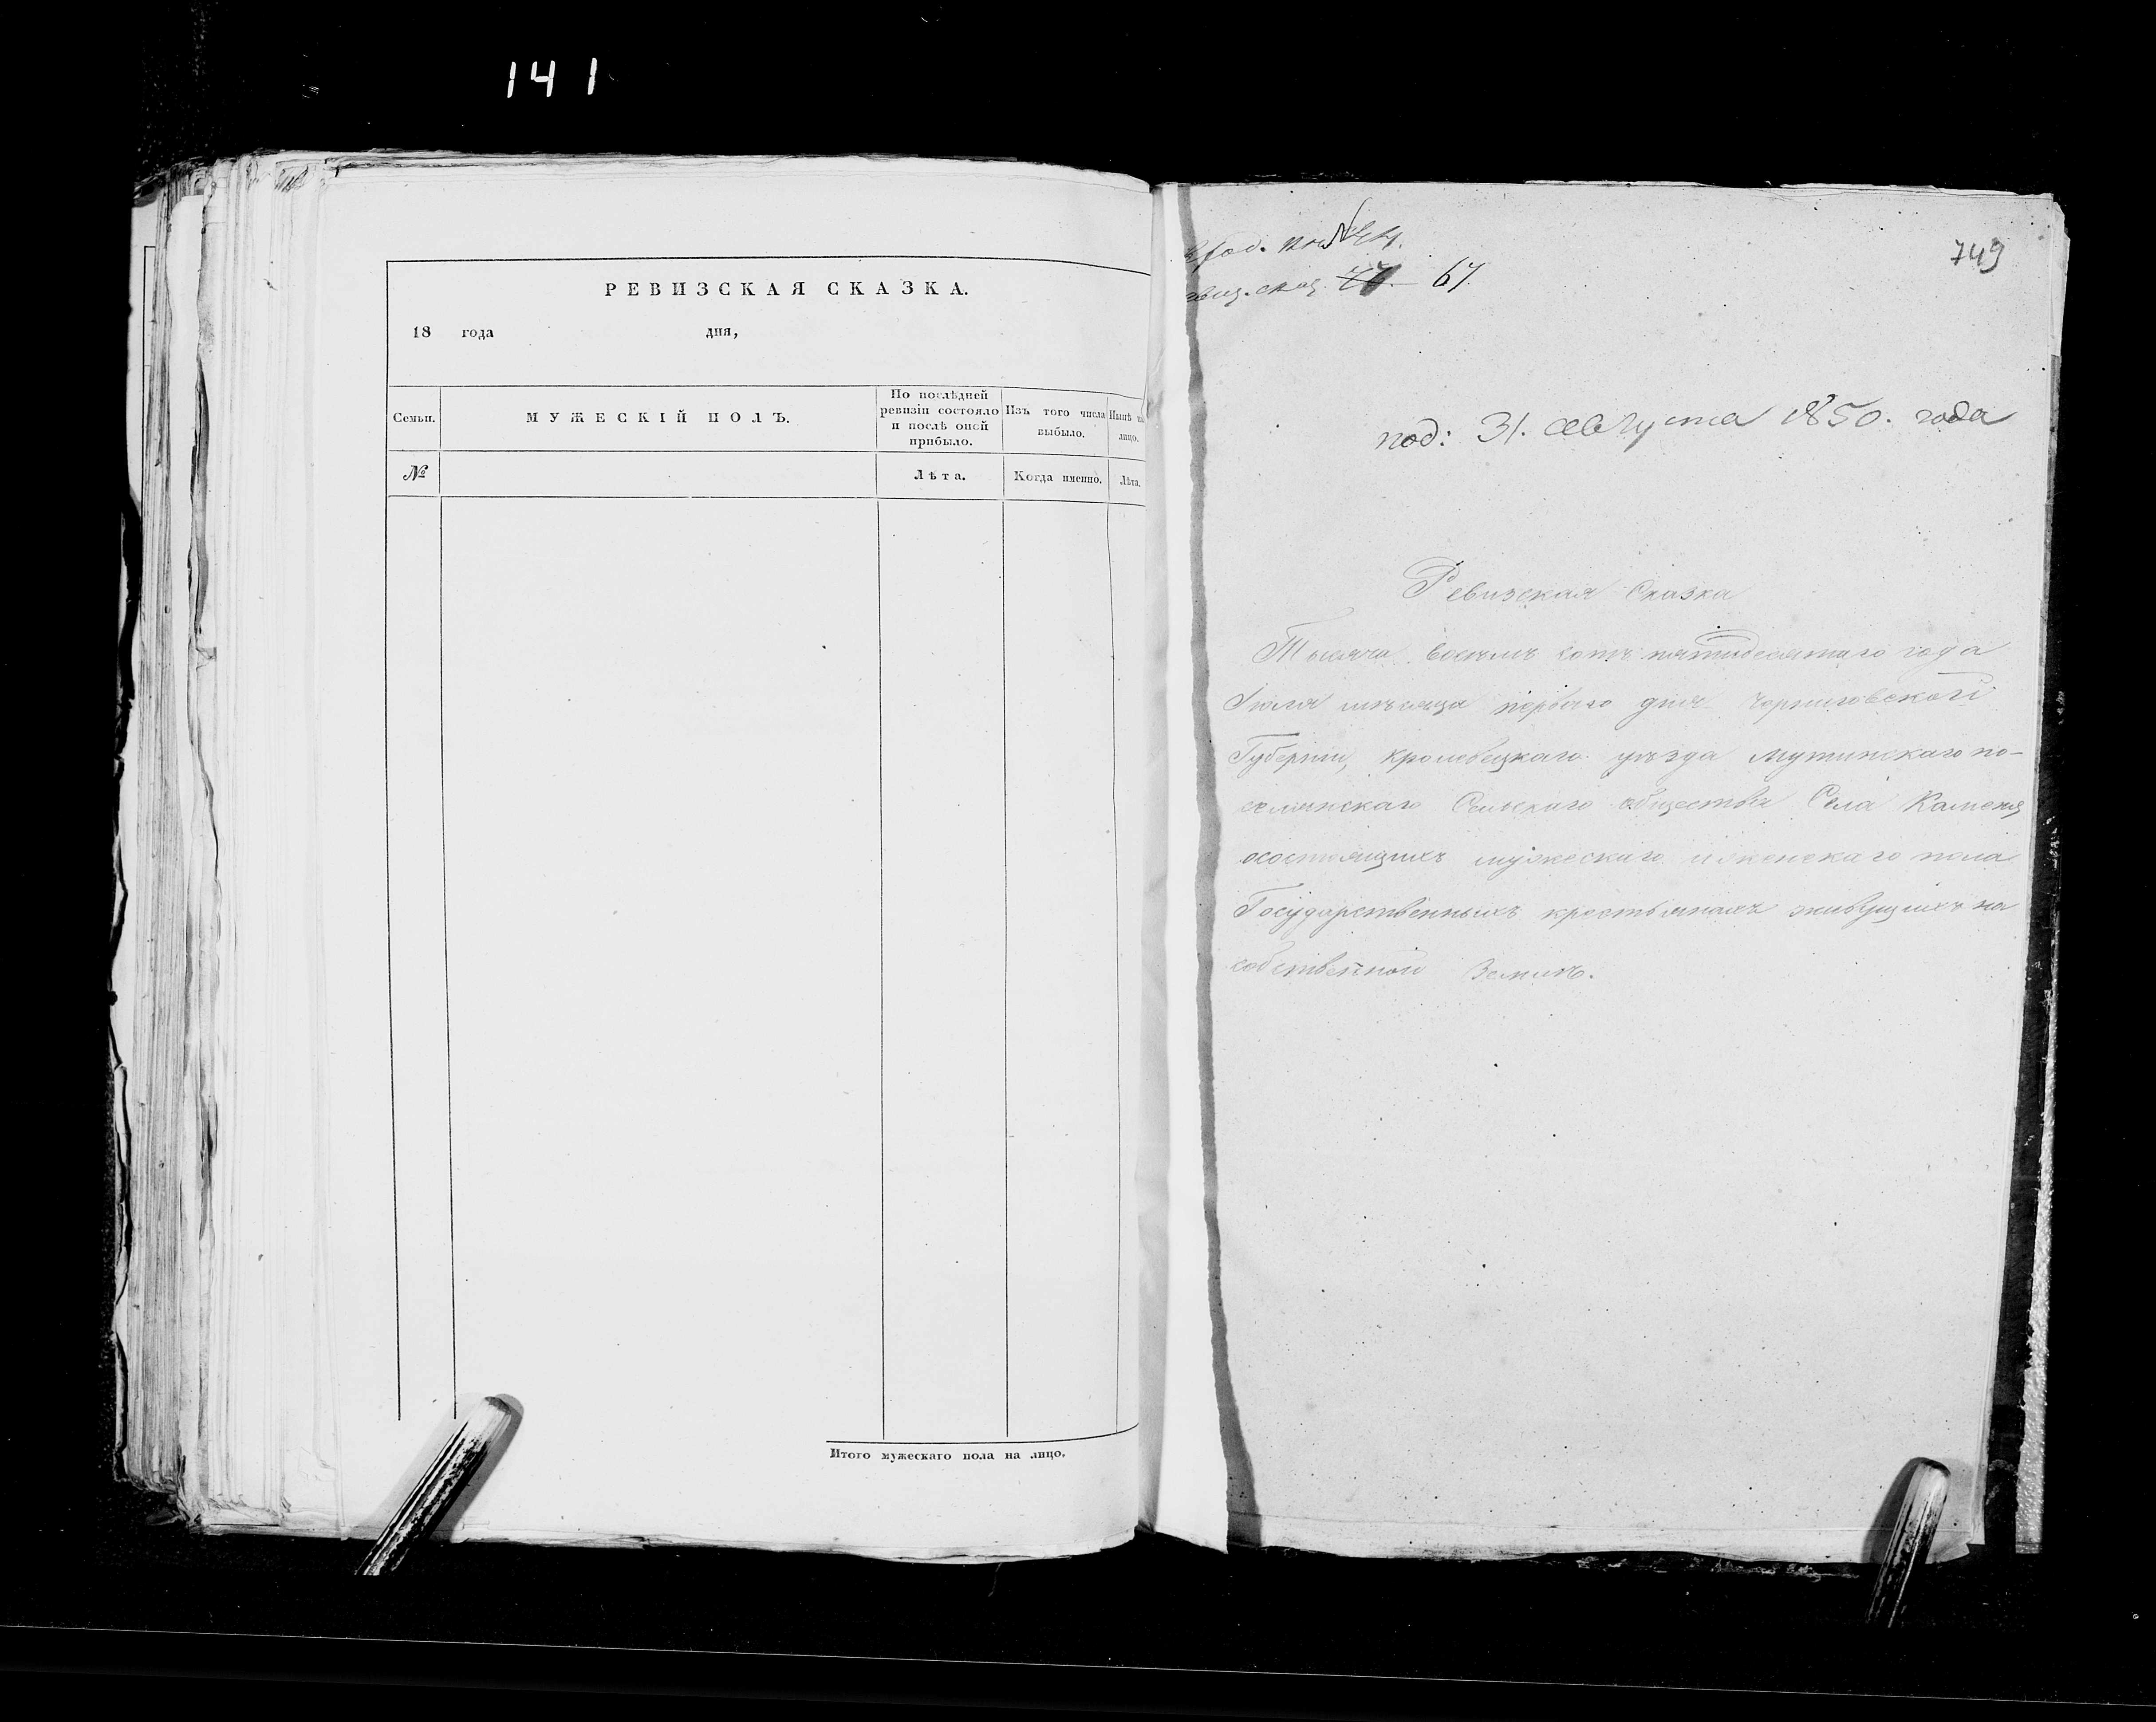 141
РЕВИЗСКАЯ СКАЗКА.
18 года дня,
Семьи.
МУЖЕСКІЙ ПОЛЪ.
По послѣдней ревизіи состояло и послѣ оной прибыло.
Изъ того числа выбыло.
Нынѣ на лицо.
№
Лѣта.
Когда именно.
Лѣта.
Итого мужескаго пола на лицо.
67
749
под: 31. августа 1850. года
Ревизская Сказка
Тысяча восемь сотъ пятидесятаго года
Іюля мѣсяца перваго дня Черниговской
Губерніи, Кролевецкаго уѣзда Мутинскаго по-
селянскаго Сельскаго общества Села Каменя
осостоящихъ мужескаго и женскаго пола
Государственныхъ крестьянахъ живущихъ на
собственной Землѣ.